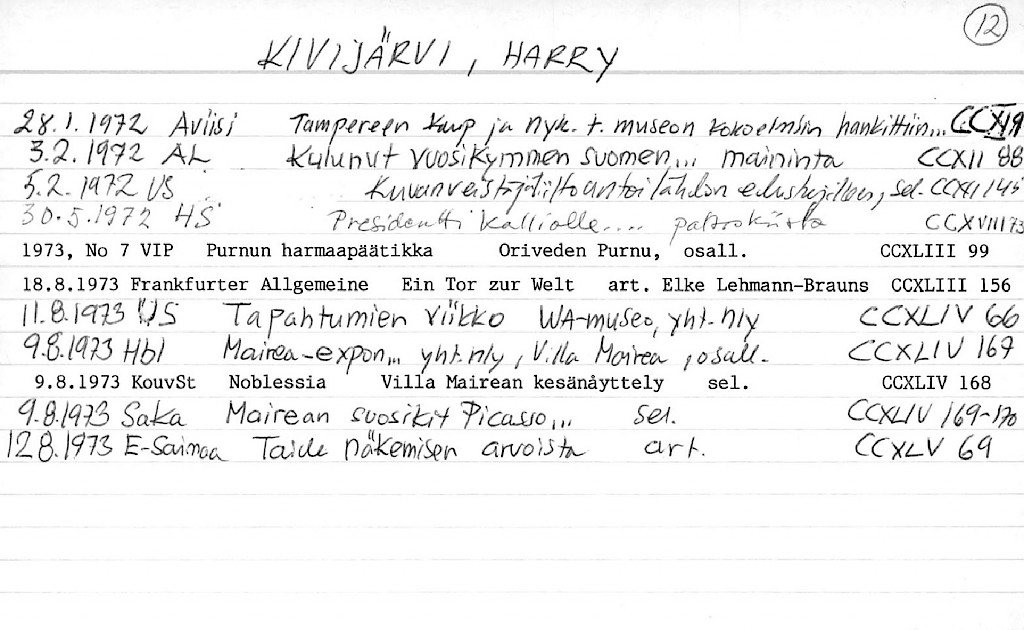 12
KIVIJÄRVI, HARRY
28.1.1972 Aviisi Tampereen kaup ja nyk. t. museon kokoelmiin hankittiin...
3.2.1972 AL Kulunut vuosikymmen suomen... maininta CCXII 88
5.2.1972 US sel. CCXII 145
30.5.1972 HS Presidentti Kalliolle.... patsaskiista CCXVIII 73
1973, No 7 VIP Purnun harmaapäätikka Oriveden Purnu, osall. CCXLIII 99
18.8.1973 Frankfurter Allgemeine Ein Tor zur Welt art. Elke Lehmann-Brauns CCXLIII 156
11.8.1973 US Tapahtumien viikko WA-museo, yht.nly CCXLIV 66
9.8.1973 Hbl Mairea-expon... yht.nly, Villa Mairea, osall. CCXLIV 167
9.8.1973 KouvSt Noblessia Villa Mairean kesänäyttely sel. CCXLIV 168
9.8.1973 SaKa Mairean suosikit Picasso... sel. CCXLIV 169-170
12.8.1973 E-Saimaa Taide näkemisen arvoista art. CCXLV 69